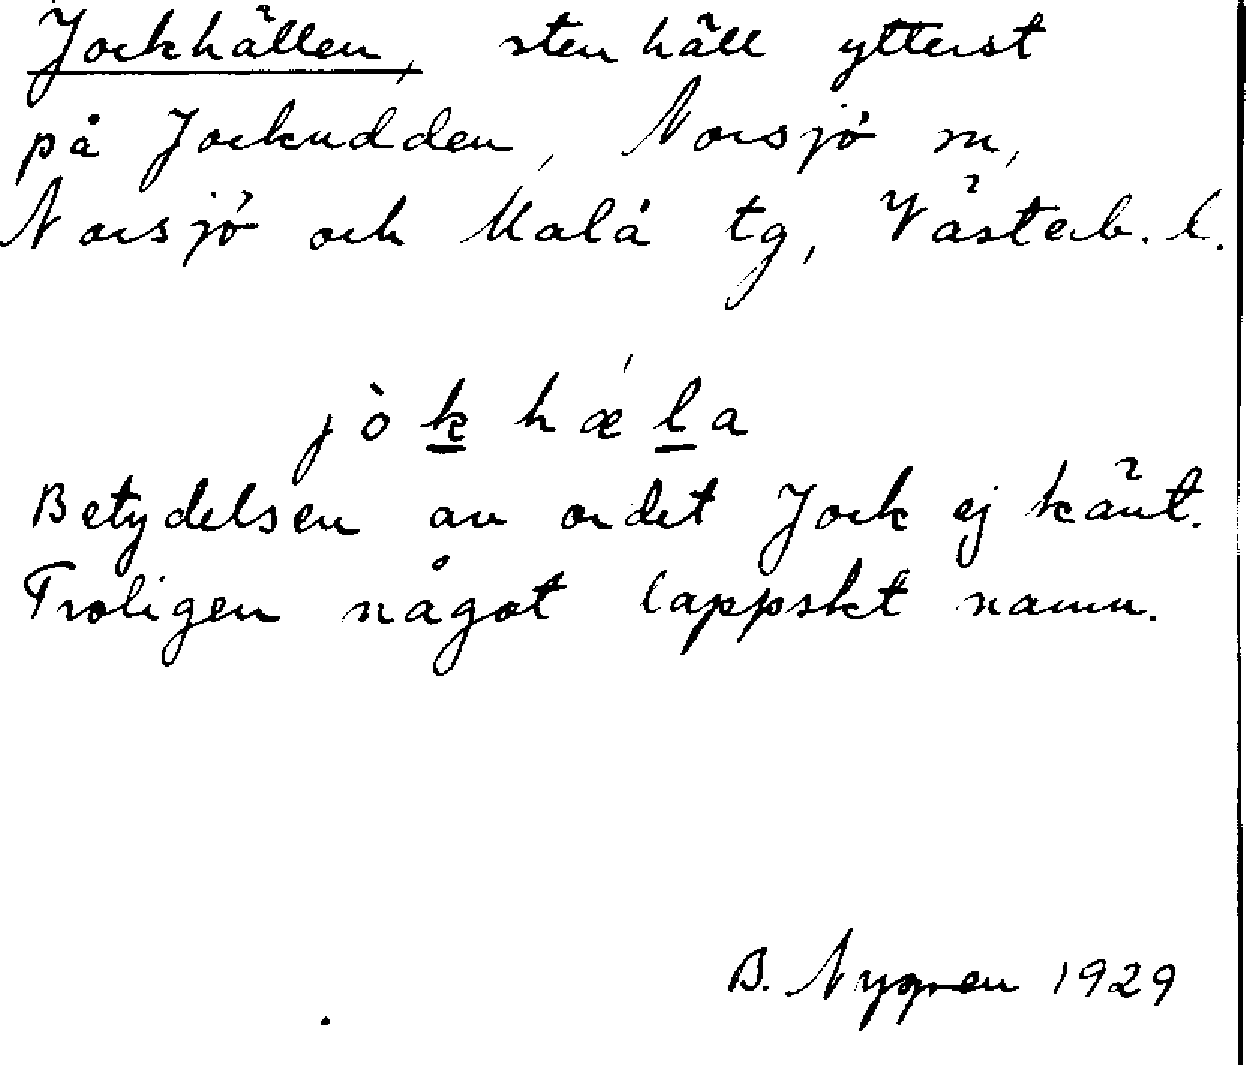 Jockhällen, stenhäll ytterst
på Jockudden, Norsjö sn,
Norsjö och Malå tg, Västerb. l.
jòk hǽla
Betydelsen av ordet Jock ej känt.
Troligen något lappskt namn.
B. Nygren 1929